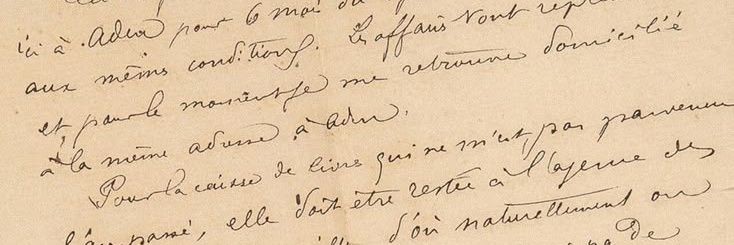 ici à Aden pour 6 mois du
aux mêmes conditions. Les affaires vont repre
et, pour le moment je me retrouve domicilié
à la même adresse, à Aden.
Pour la caisse de livres qui ne m'est pas parvenue
l'an passé, elle doit être restée à l'agence des
d'où naturellement on
de